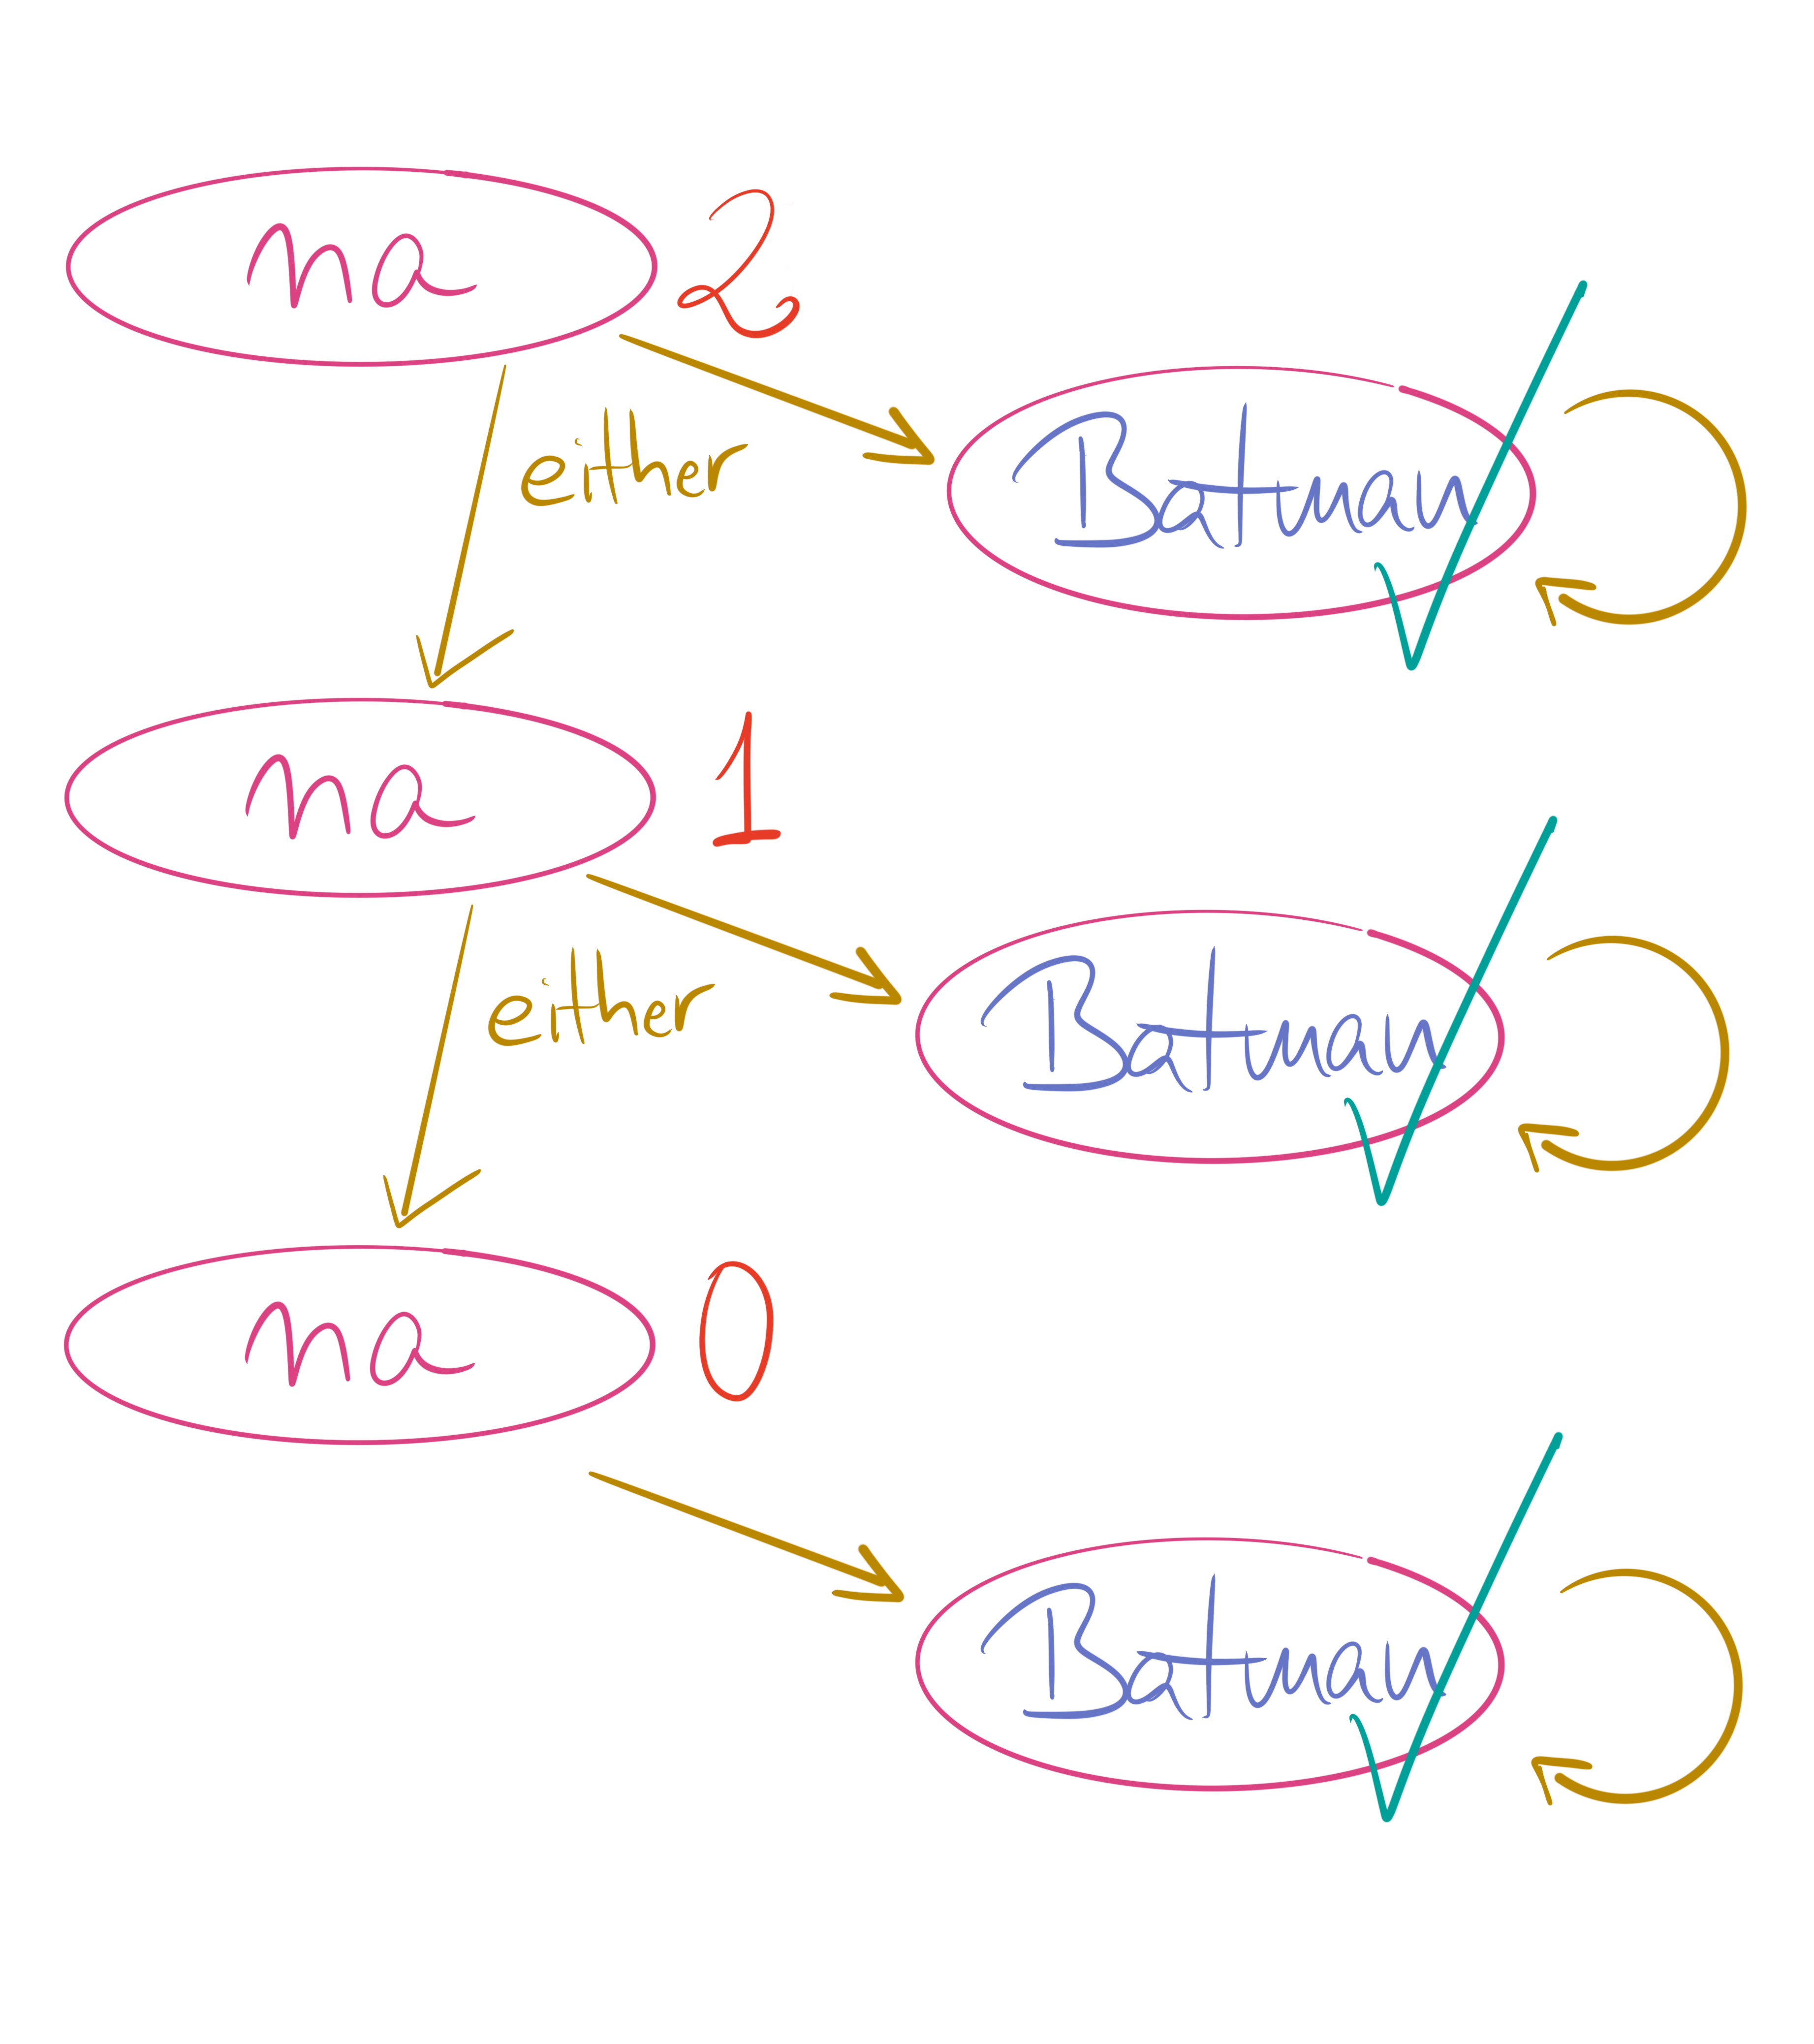 na 2
either
Batman
na 1
either
Batman
na 0
Batman